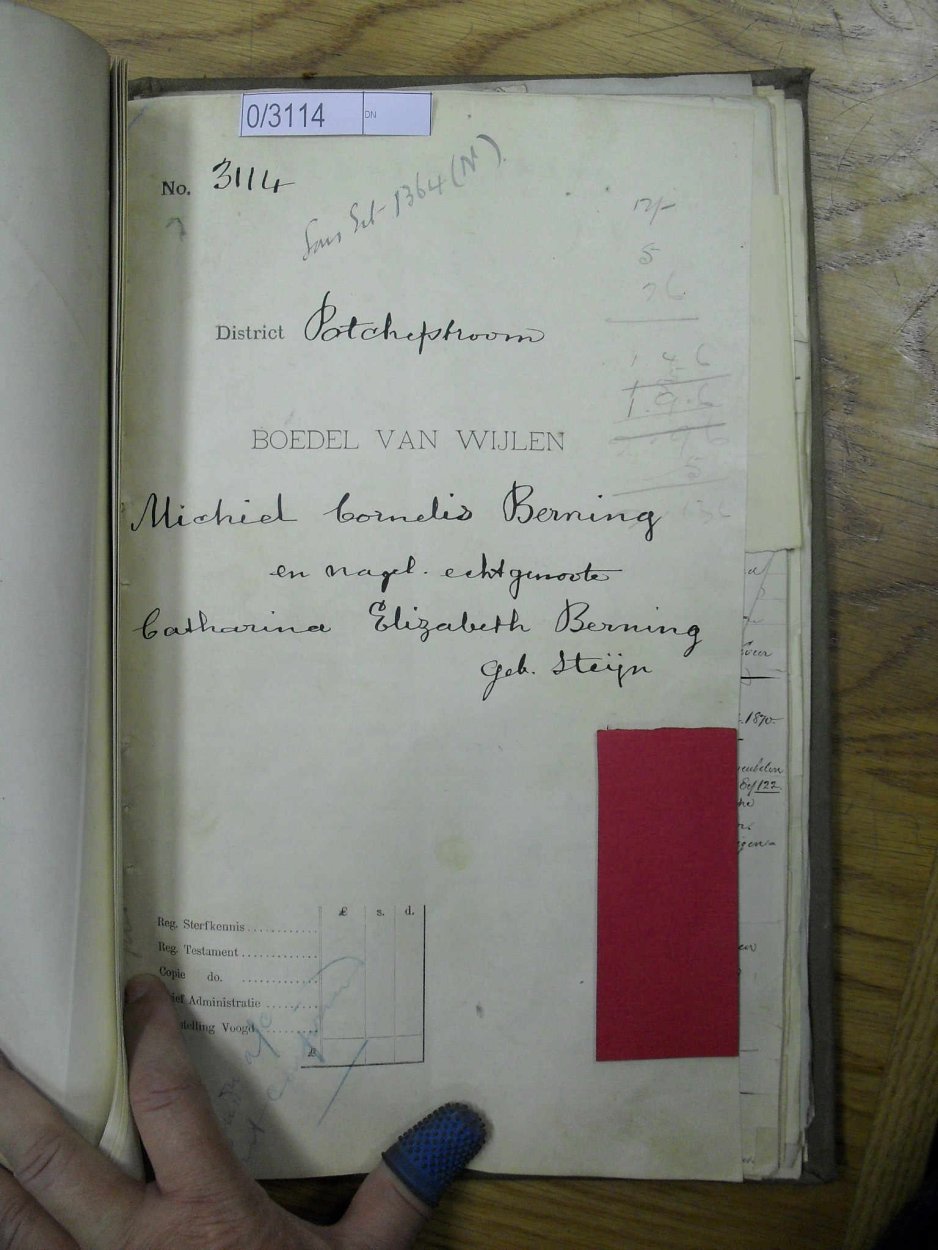 0/3114 DN
No. 3114
1364 (N).
12/-
5
District Potchefstroom
1 4 6
1.8.6
BOEDEL VAN WIJLEN
Michiel Cornelis Berning
en nagel. echtgenoote
Catharina Elizabeth Berning
geb. Steijn
1870
122
£ s. d.
Reg. Sterfkennis
Reg. Testament
Copie do.
ief Administratie
telling Voogd
£